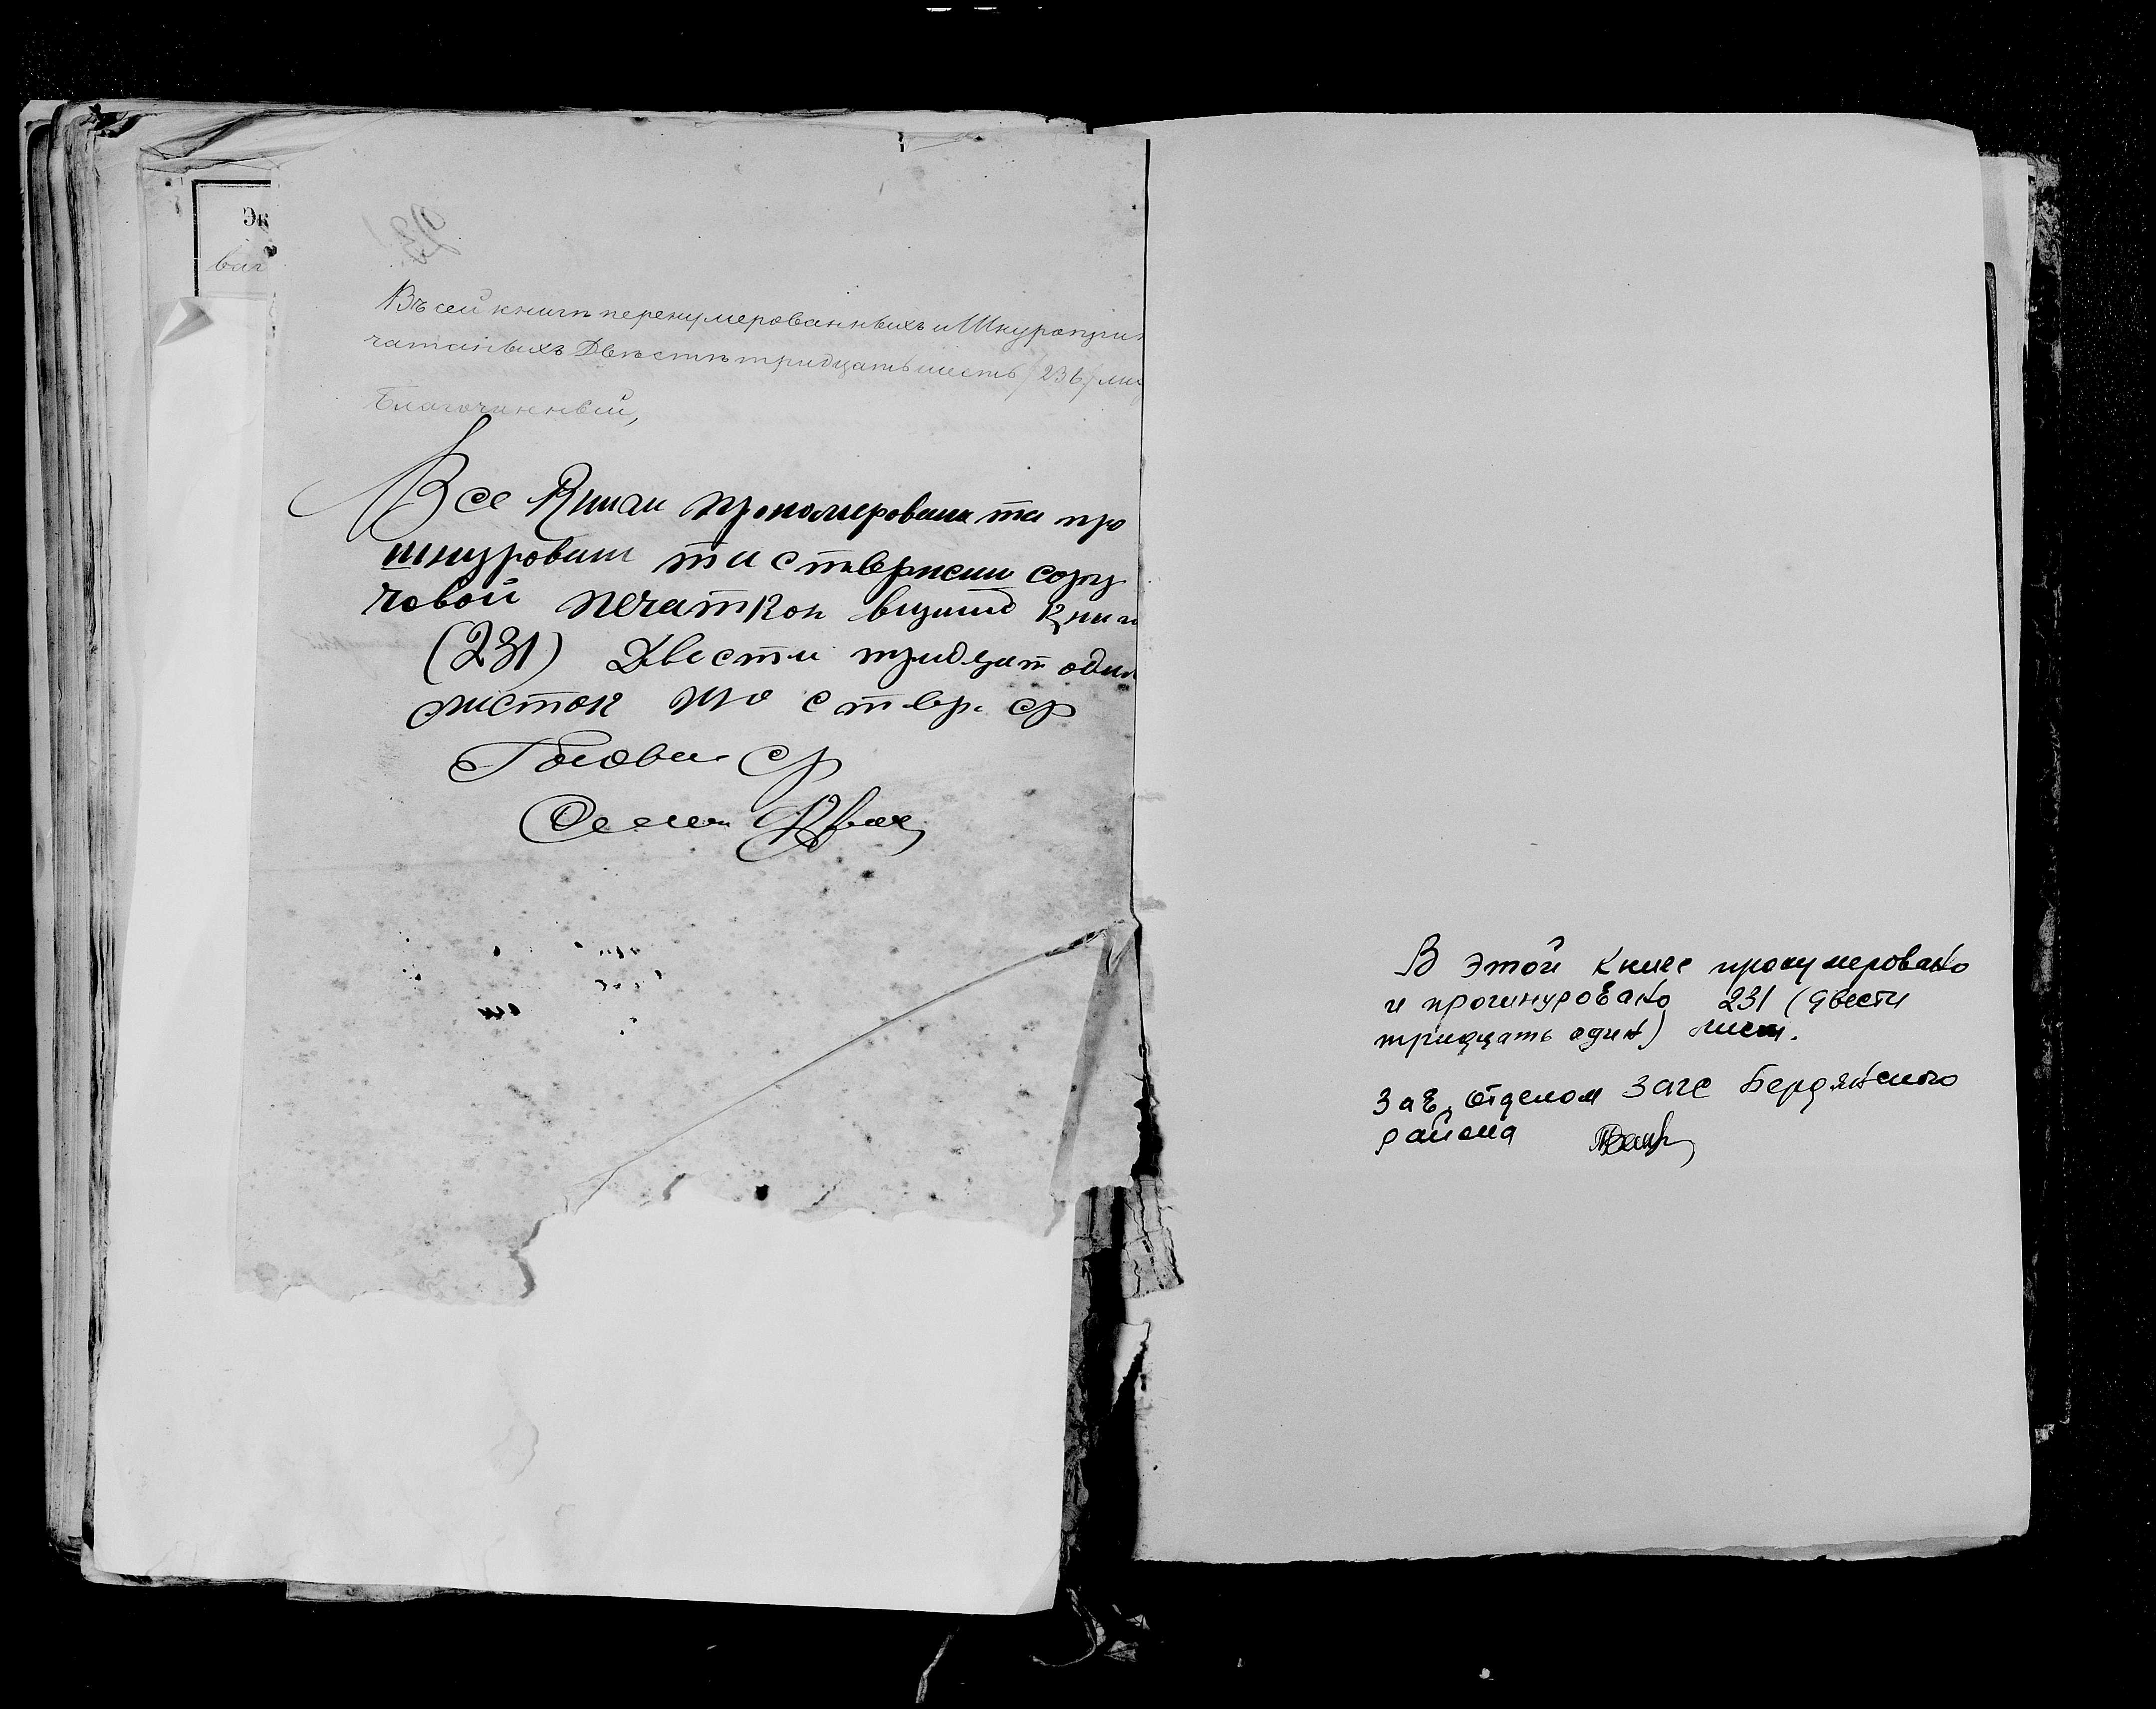 Эк
Въ сей книгѣ перенумерованныхъ и Шнуропри
чатаныхъ Двѣсти тридцать шесть /236/ лис
Благочинный,
Все Книги прономерована та про
шнурована та ствержени
човой печаткой книги
(231) Двести тридцат один
листок що ствер. ср
Голова ср
В этой книге пронумеровано
и прошнуровано 231 (двести
тридцать один) лист.
Зав. отделом Загс Бердянского
района